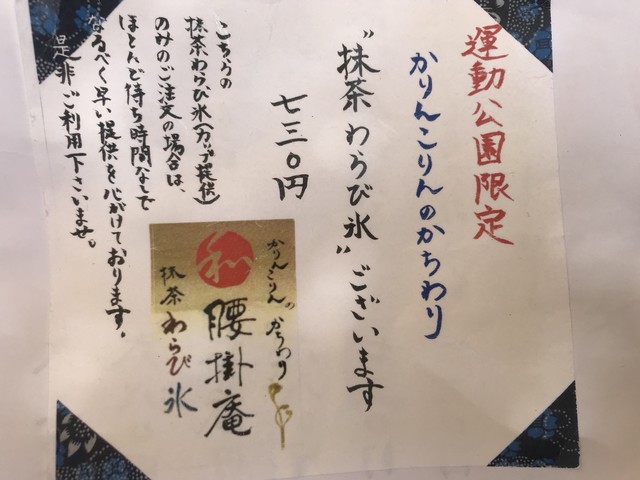 運動公園限定
かりんこりんのかちわり
"抹茶わらび氷"ございます
七三〇円
こちらの
抹茶わらび氷(カップ提供)
のみのご注文の場合は、
ほとんど待ち時間なしで
なるべく早い提供を心がけております。
是非ご利用下さいませ。
かりんこりんの
かちわり
和
腰掛庵
抹茶わらび氷